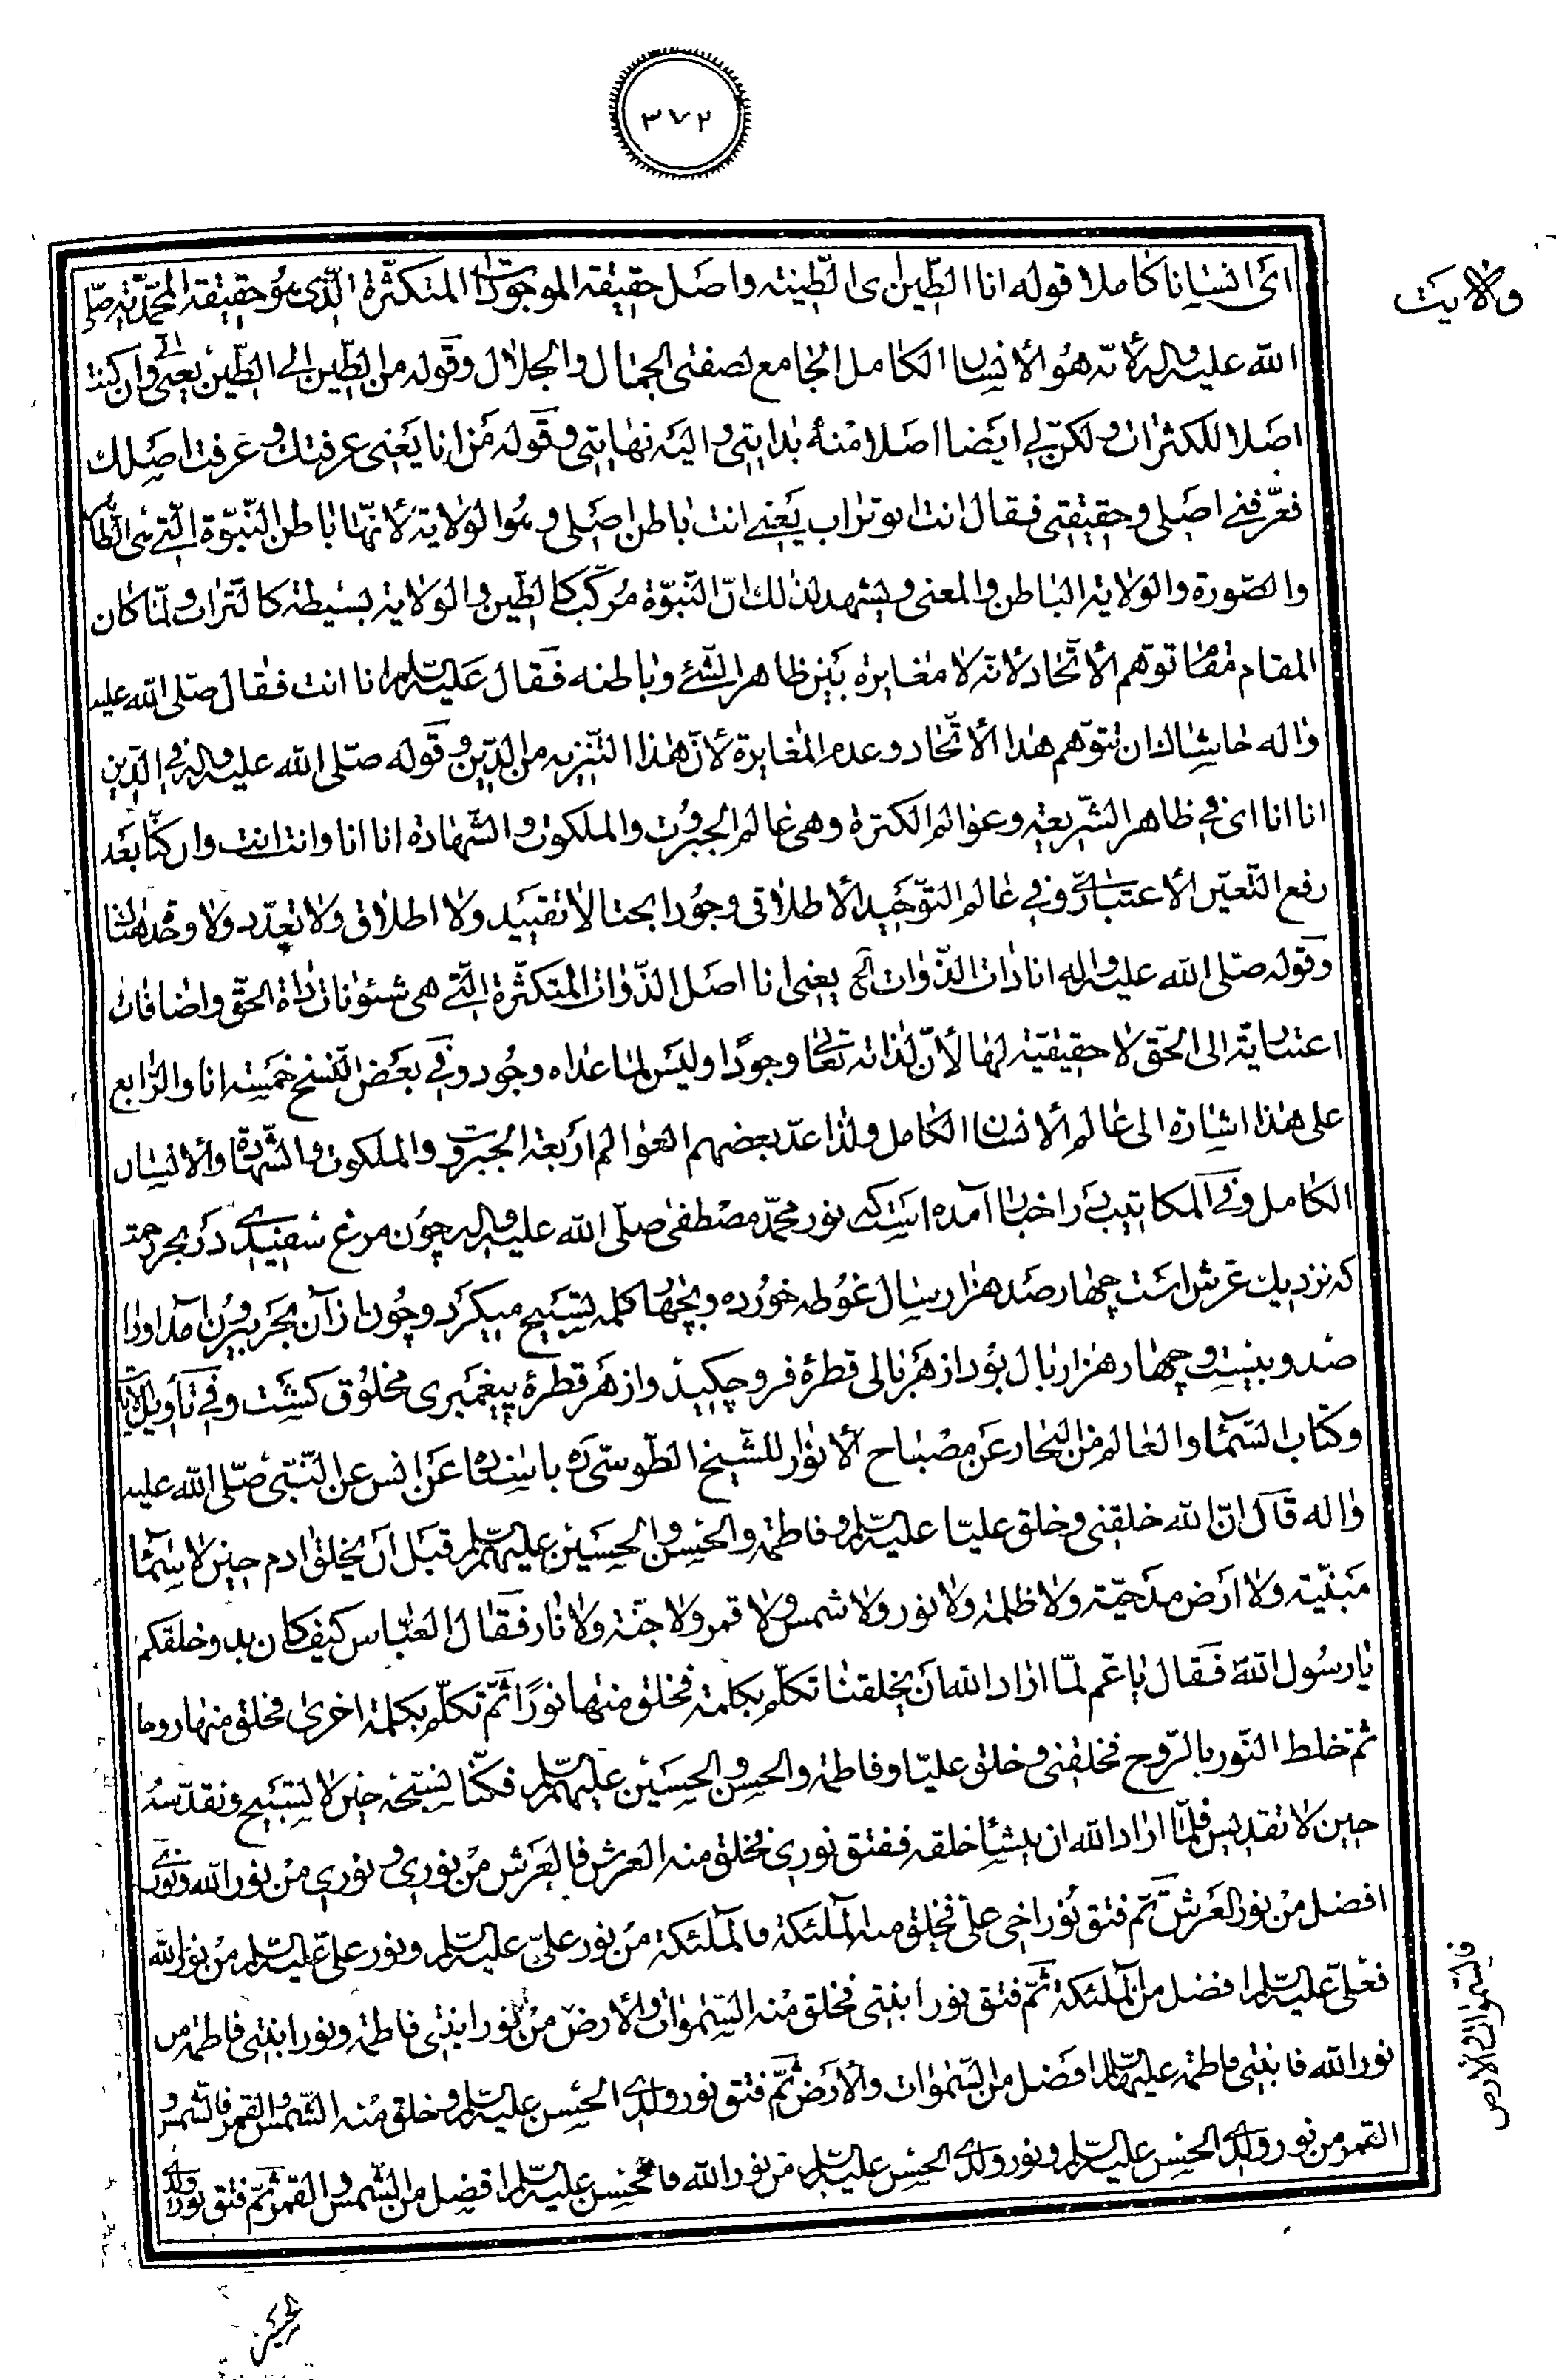 ٣٧٢
ولايت
اى انسانا كاملا قوله انا الطين اى الطينة واصل حقيقة الموجودات المتكثرة الذى هو حقيقة المحمدية صلى
الله عليه واله لأنه هو الأنسان الكامل الجامع لصفتى الجمال والجلال وقوله من الطين الى الطين يعنى انى وان كنت
اصلا للكثرات ولكن لى ايضا اصلا منه بدايتى واليه نهايتى وقوله من انا يعنى عرفتك وعرفت اصلك
فعرفنى اصلى وحقيقتى فقال انت ابو تراب يعنى انت باطن اصلى وهو الولاية لأنها باطن النبوة التى هى الظاهر
والصورة والولاية الباطن والمعنى ويشهد لذلك ان النبوة مركب كالطين والولاية بسيطة كالتراب ولما كان
المقام مقام توهم الأتحاد لانه لا مغايرة بين ظاهر الشئ وباطنه فقال عليه السلام انا انت فقال صلى الله عليه
واله حاشاك ان تتوهم هذا الأتحاد وعدم المغايرة لأن هذا التنزيه من الدين وقوله صلى الله عليه واله فى الدين
انا انا اى فى ظاهر الشريعة وعوالم الكثرة وهى عالم الجبروت والملكوت والشهادة انا انا وانت انت وان كنا بعد
رفع التعين الأعتبارى وفى عالم التوحيد الأطلاقى وجودا بحتا لا تقييد ولا اطلاق ولا تعدد ولا وحدة هناك
وقوله صلى الله عليه واله انا ذات الذوات الخ يعنى انا اصل الذوات المتكثرة التى هى شئونات ذات الحق واضافات
اعتبارية الى الحق لا حقيقية لها لأن لذاته تعالى وجودا وليس لما عداه وجود وفى بعض النسخ خمسة انا والرابع
على هذا اشارة الى عالم الأنسان الكامل ولذا عد بعضهم العوالم اربعة الجبروت والملكوت والشهادة والأنسان
الكامل وفى المكاتيب در اخبار آمده است كه نور محمد مصطفى صلى الله عليه واله چون مرغ سفيدى در بحر رحمت
كه نزديك عرش است چهار صد هزار سال غوطه خورده وبچهار كلمه تسبيح ميكرد وچون از آن بحر بيرون آمد او را
صد وبيست وچهار هزار بال بود از هر بالى قطرهٔ فرو چكيد واز هر قطرهٔ پيغمبرى مخلوق كشت وفى تأويل الآيات
وكتاب السماء والعالم من البحار عن مصباح الأنوار للشيخ الطوسى ره باسناده عن انس عن النبى صلى الله عليه
واله قال ان الله خلقنى وخلق عليا عليه السلام وفاطمة والحسن والحسين عليهم السلام قبل ان يخلق ادم حين لا سماء
مبنية ولا ارض مدحية ولا ظلمة ولا نور ولا شمس ولا قمر ولا جنة ولا نار فقال العباس كيف كان بدو خلقكم
يا رسول الله فقال يا عم لما اراد الله ان يخلقنا تكلم بكلمة فخلق منها نورا ثم تكلم بكلمة اخرى فخلق منها روحا
ثم خلط النور بالروح فخلقنى وخلق عليا وفاطمة والحسن والحسين عليهم السلام فكنا نسبحه حين لا تسبيح ونقدسه
حين لا تقديس فلما اراد الله ان ينشأ خلقه ففتق نورى فخلق منه العرش فالعرش من نورى ونورى من نور الله ونورى
افضل من نور العرش ثم فتق نور اخى على فخلق منه الملئكة فالملئكة من نور على عليه السلام ونور على عليه السلام من نور الله
فعلى عليه السلام افضل من الملئكة ثم فتق نور ابنتى فخلق منه السموات والأرض من نور ابنتى فاطمة ونور ابنتى فاطمة من
فالسموات والأرض
نور الله فابنتى فاطمة عليها السلام افضل من السموات والأرض ثم فتق نور ولدى الحسن عليه السلام وخلق منه الشمس والقمر فالشمس و
القمر من نور ولدى الحسن عليه السلام ونور ولدى الحسن عليه السلام من نور الله فالحسن عليه السلام افضل من الشمس والقمر ثم فتق نور ولدى
الحسين